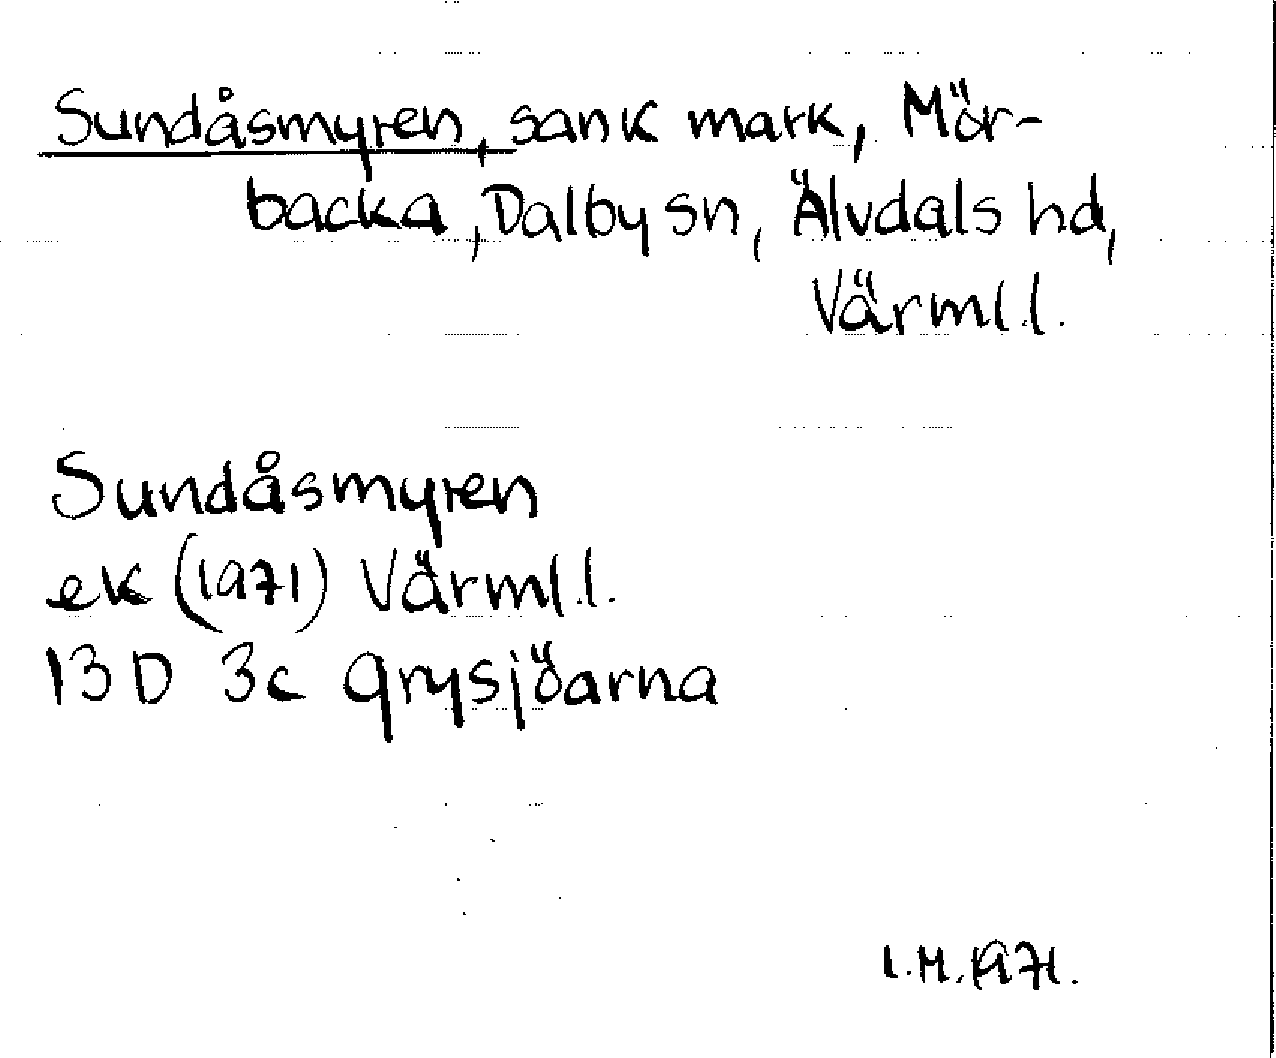 Sundåsmyren, sank mark, Mör-
backa, Dalby sn, Älvdals hd,
Värml.l.
Sundåsmyren
ek (1971) Värml.l.
13 D 3c Grysjöarna
I.M. 1971.